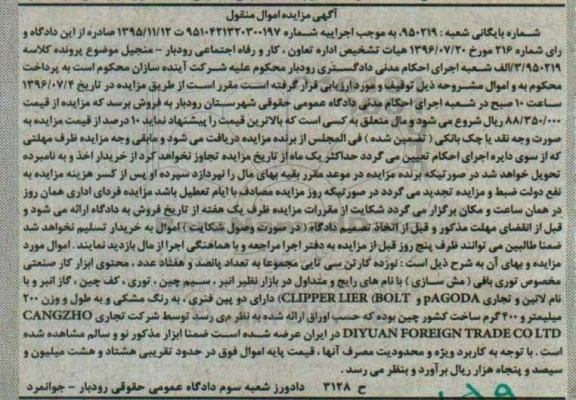 آگهی مزایده اموال منقول
شماره بایگانی شعبه : ۹۵۰۲۱۹، به موجب اجراییه شماره ۹۵۱۰۴۲۱۳۲۰۳۰۰۱۹۷ ت ۱۳۹۵/۱۱/۱۲ صادره از این دادگاه و
رای شماره ۲۱۶ مورخ ۱۳۹۶/۰۷/۲۰ هیات تشخیص اداره تعاون ، کار و رفاه اجتماعی رودبار - منجیل موضوع پرونده کلاسه
۳/۹۵۰۲۱۹/الف شعبه اجرای احکام مدنی دادگستری رودبار محکوم علیه شرکت آینده سازان محکوم است به پرداخت
محکوم به و اموال مشروحه ذیل توقیف و مورد ارزیابی قرار گرفته است مقرر است از طریق مزایده در تاریخ ۱۳۹۶/۰۷/۴
ساعت ۱۰ صبح در شعبه اجرای احکام مدنی دادگاه عمومی حقوقی شهرستان رودبار به فروش برسد که مزایده از قیمت
۸۸/۳۵۰/۰۰۰ ریال شروع می شود و مال متعلق به کسی است که بالاترین قیمت را پیشنهاد نماید ۱۰ درصد از قیمت مزایده به
صورت وجه نقد یا چک بانکی ( تضمین شده ) فی المجلس از برنده مزایده دریافت می شود و مابقی وجه مزایده ظرف مهلتی
که از سوی دایره اجرای احکام تعیین می گردد حداکثر یک ماه از تاریخ مزایده تجاوز نخواهد کرد از خریدار اخذ و به نامبرده
تحویل خواهد شد در صورتیکه برنده مزایده در موعد مقرر بقیه بهای مال را نپردازد سپرده او پس از کسر هزینه مزایده به
نفع دولت ضبط و مزایده تجدید می گردد در صورتیکه روز مزایده مصادف با ایام تعطیل باشد مزایده فردای اداری همان روز
در همان ساعت و مکان برگزار می گردد شکایت از مقررات مزایده ظرف یک هفته از تاریخ فروش به دادگاه ارائه می شود و
قبل از انقضای مهلت مذکور و قبل از اتخاذ تصمیم دادگاه ( در صورت وصول شکایت ) اموال به خریدار تسلیم نخواهد شد
ضمنا طالبین می توانند ظرف پنج روز قبل از مزایده به دفتر اجرا مراجعه و با هماهنگی اجرا از مال بازدید نمایند . اموال مورد
مزایده و بهای آن به شرح ذیل است : نوزده کارتن سی تایی مجموعا به تعداد پانصد و هفتاد عدد ، محتوی ابزار کار صنعتی
مخصوص توری بافی ( مش سازی ) با نام های رایج و متداول در بازار نظیر انبر ، سیم چین ، توری ، کف چین ، گاز انبر و با
نام لاتین و تجاری PAGODA و CLIPPER LIER (BOLT) دارای دو پین فنری ، به رنگ مشکی و به طول و وزن ۲۰۰
میلیمتر و ۴۰۰ گرم ساخت کشور چین بوده که حسب اوراق ارائه شده به نظر می رسد توسط شرکت تجاری CANGZHO
DIYUAN FOREIGN TRADE CO LTD در ایران عرضه شده است ضمنا ابزار مذکور نو و سالم مشاهده شده
است . با توجه به کاربرد ویژه و محدودیت مصرف آنها ، قیمت پایه اموال فوق در حدود تقریبی هشتاد و هشت میلیون و
سیصد و پنجاه هزار ریال برآورد و بنظر می رسد .
ح ۳۱۲۸ دادورز شعبه سوم دادگاه عمومی حقوقی رودبار - جوانمرد